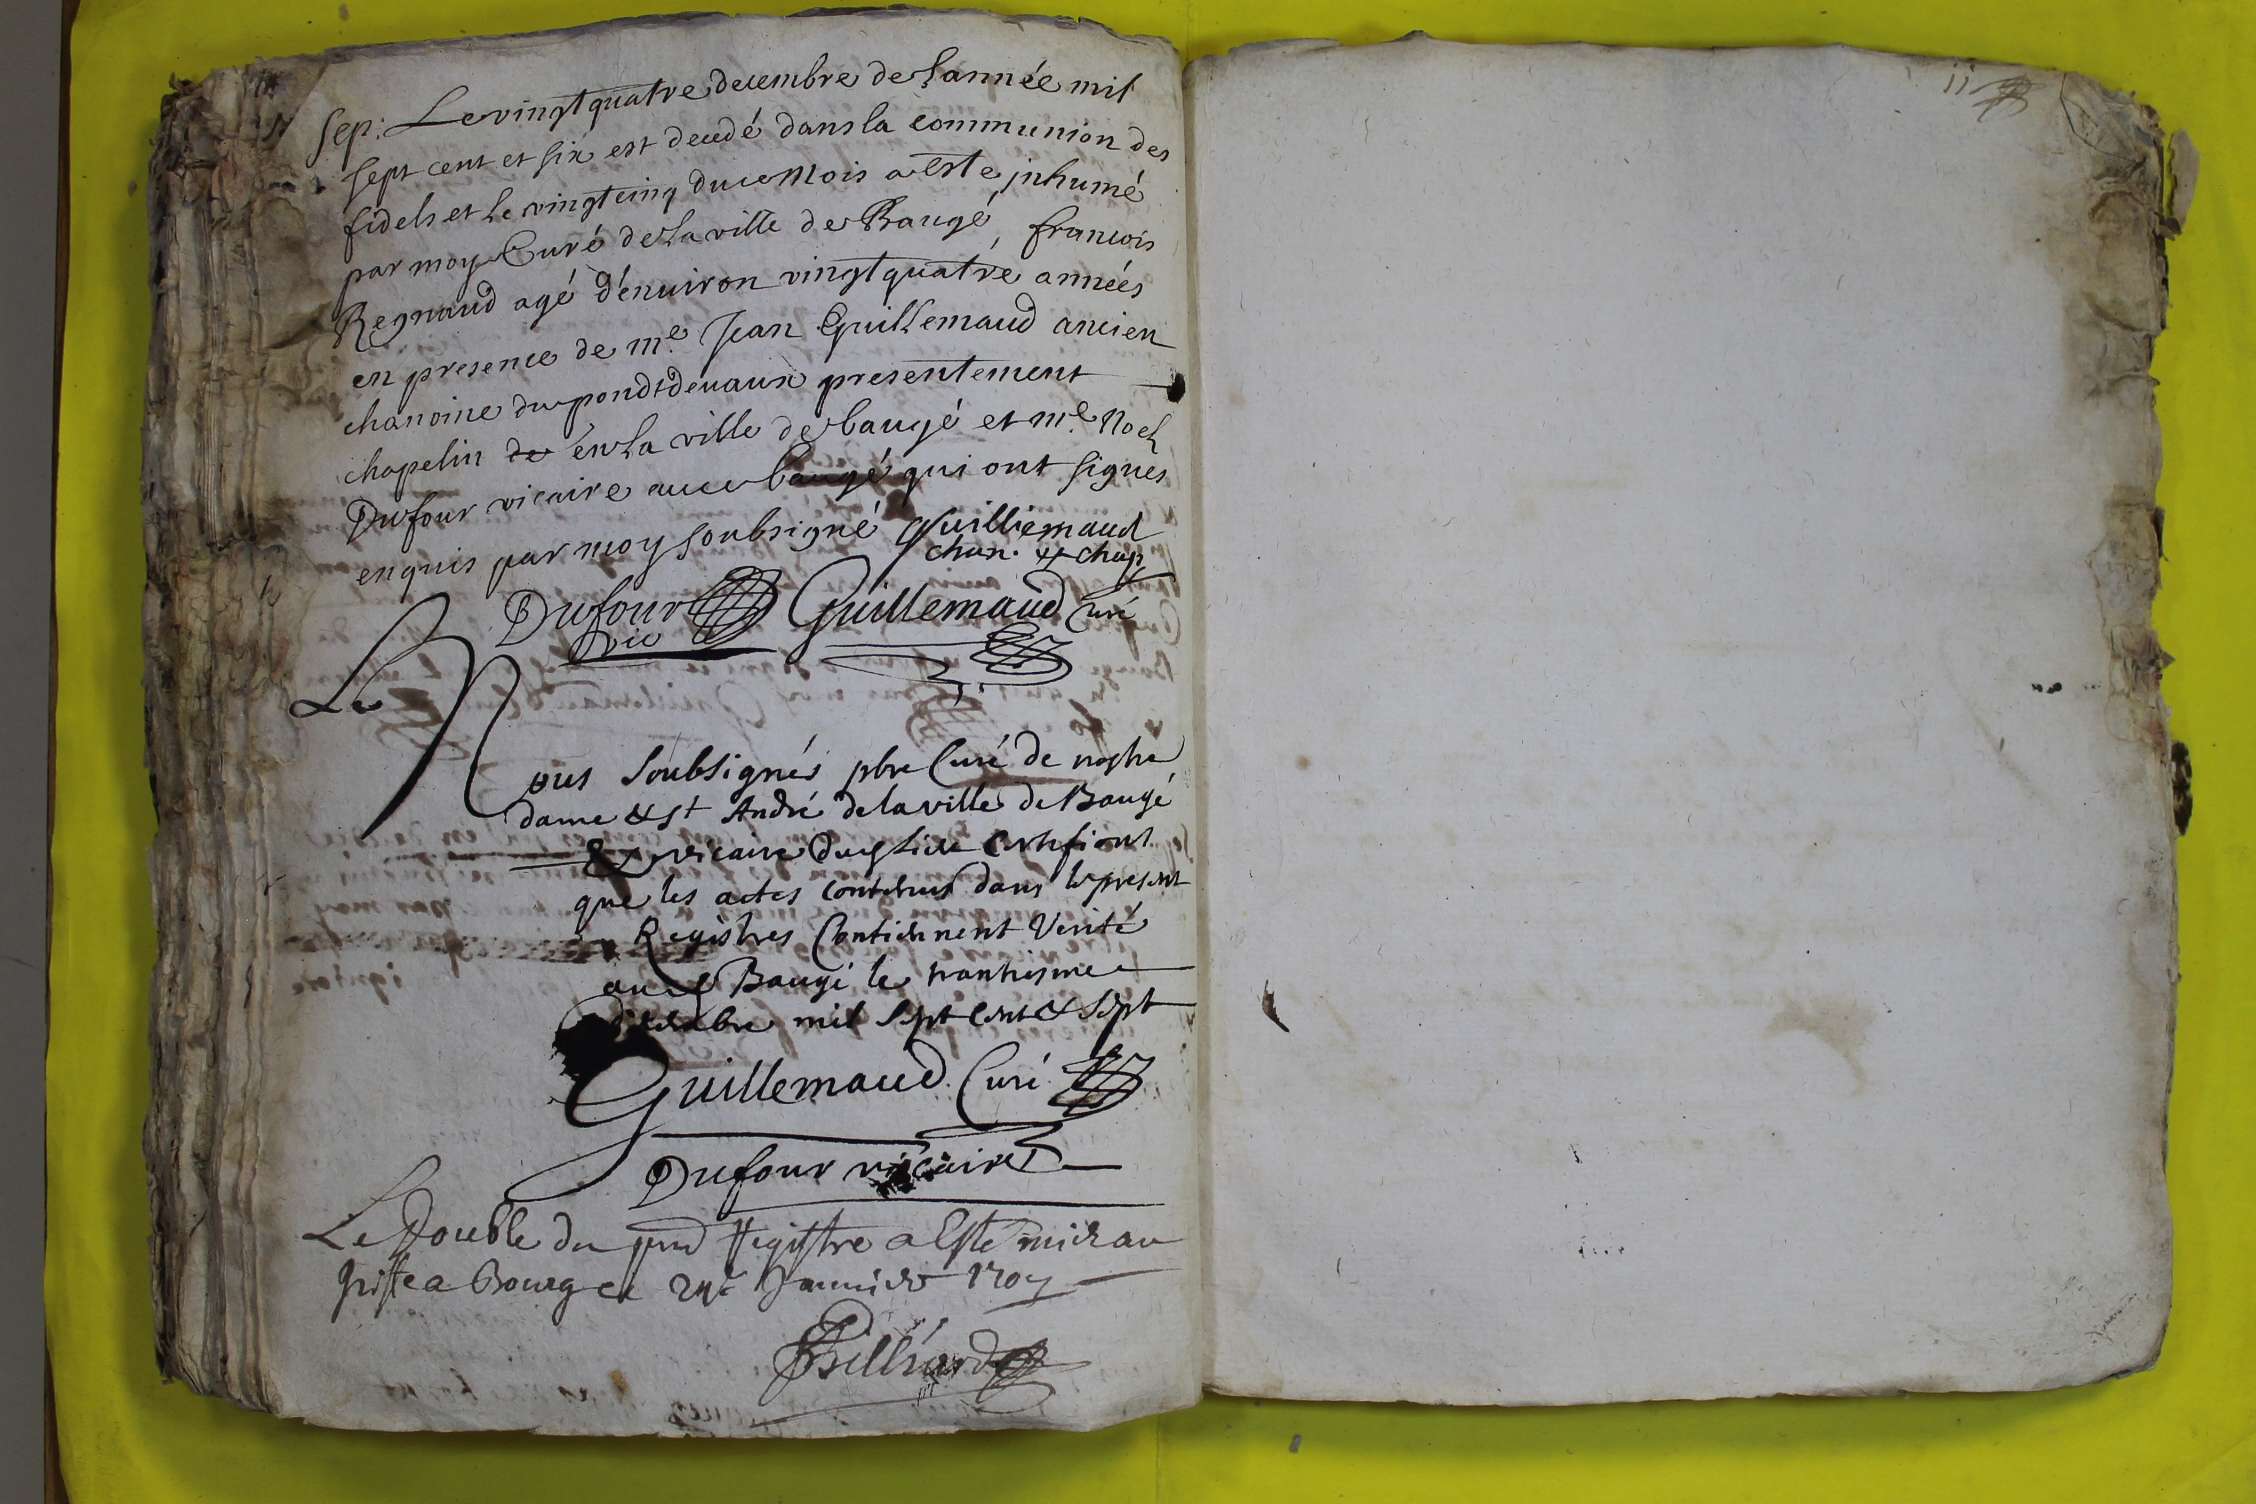 Sep: Le vingtquatre decembre de lannée mil
sept cent et six est decedé dans la communion des
fidels et le vingtcinq du ce mois a este jnhumé
par moy Curé de la ville de Baugé, francois
Regnaud agé dénuiron vingtquatre années
en presence de me. Jean Guillemaud ancien
chanoine du pondtdevaux presentement
chapelin de én la ville de baugé et me. Noel
Dufour vicaire aud baugé qui ont signés
enquis par moy soubsigné Guilliemaud
chan. & chap
Dufour Guillemaud Curé
vic
Le
Nous soubsignés pbre Curé de nostre
dame & st André de la ville de Baugé
& vicaire dud lieu Certifiont
que les actes contenus dans le present
Régistres Contiennent Vérité
aud Baugé le trantiesme
décembre mil sept cent & sept
Guillemaud Curé
Dufour vicaire
Le Double du pnt Registre a Esté mis au
greffe a Bourg ce 24e Januier 1707
Billiard
ii